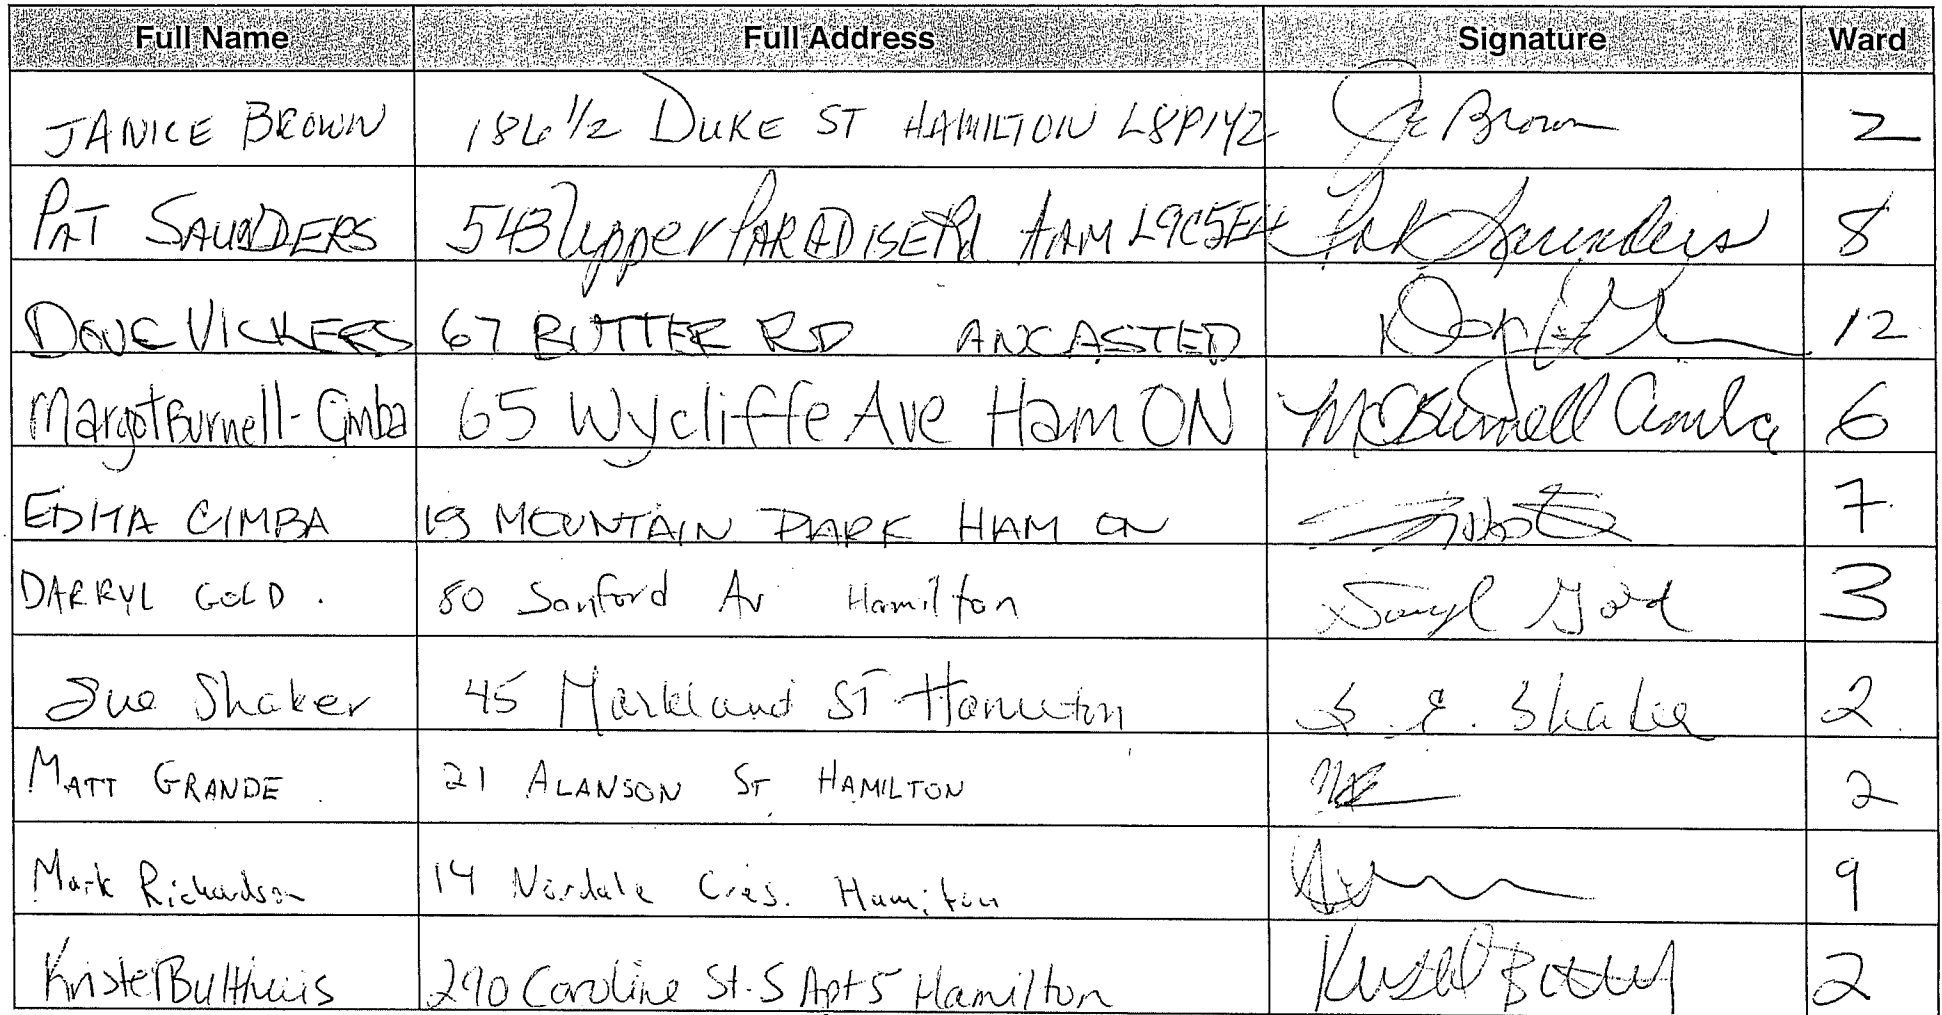 Full Name Full Address Signature Ward
JANICE BROWN 186 1/2 DUKE ST HAMILTON L8P1Y2 Brown 2
PAT SAUNDERS 543 Upper PARADISE Rd HAM L9C5E4 Pat Saunders 8
DOUG VICKERS 67 BUTTER RD ANCASTER 12
Margot Burnell-Cimba 65 Wycliffe Ave Ham ON MCBurnell Cimba 6
EDITA CIMBA 19 MOUNTAIN PARK HAM ON 7
DARRYL GOLD. 80 Sanford Av Hamilton Darryl Gold 3
Sue Shaker 45 Markland ST Hamilton S. E. Shaker 2
MATT GRANDE 21 ALANSON ST HAMILTON 2
Mark Richardson 14 Nordale Cres. Hamilton 9
Kristel Bulthuis 290 Caroline St. S Apt 5 Hamilton 2